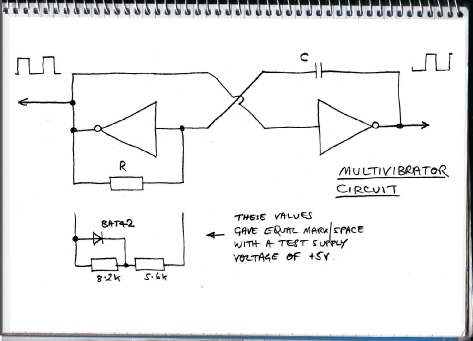 C
R
MULTIVIBRATOR
CIRCUIT
BAT42
8.2K
5.6K
THESE VALUES
GAVE EQUAL MARK/SPACE
WITH A TEST SUPPLY
VOLTAGE OF +5V.